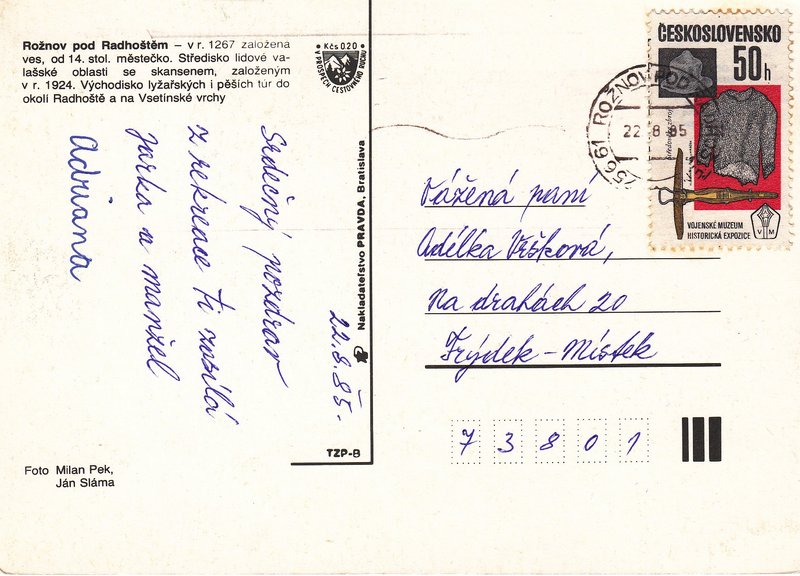 Rožnov pod Radhoštěm – v r. 1267 založena
ves, od 14. stol. městečko. Středisko lidové va-
lašské oblasti se skansenem, založeným
v r. 1924. Východisko lyžařských i pěších túr do
okolí Radhoště a na Vsetínské vrchy
Kčs 0.20
V PROSPĚCH CESTOVNÉHO RUCHU
Srdečný pozdrav
z rekreace ti zasílá
Jarka a manžel
Adriana
22.8.85.
Nakladateľstvo PRAVDA, Bratislava
TZP-8
Foto Milan Pek,
Ján Sláma
ČESKOSLOVENSKO
50h
VOJENSKÉ MUZEUM
HISTORICKÁ EXPOZICE
VM
756 61 ROŽNOV POD RADHOŠTĚM
22.8.85
Vážená paní
Adélka Vršková,
Na drahách 20
Frýdek-Místek
73801